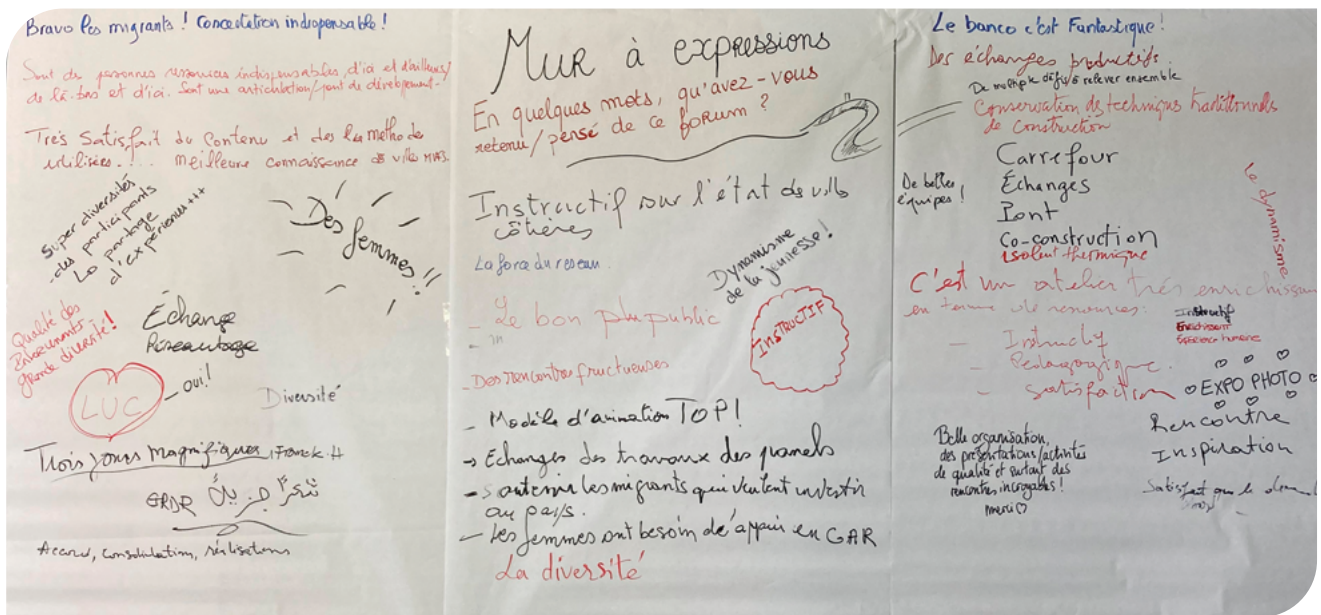 Bravo les migrants ! Concertation indispensable !
Sont de personnes ressources indispensables, d'ici et d'ailleurs/
de là-bas et d'ici. Sont une articulation/pont de développement-
Très Satisfait du Contenu et des les methode
utilisées. !... meilleure connaissance de villes
Super diversités
des participants
Le partage
d'expériences +++
Des femmes !!
Qualité des
grande diversité !
Échange
Réseautage
LUC
- oui !
Diversité
Trois jours magnifiques, Franck. H
GRDR شكرًا جزيلاً
Accord, consolidation, réalisations
Mur à expressions
En quelques mots, qu'avez-vous
retenu/pensé de ce forum ?
Instructif sur l'état des villes
côtières
La force du reseau
Dynamisme
de la jeunesse !
- Le bon public
INSTRUCTIF
- Des rencontres fructueuses
- Modèle d'animation TOP !
→ Echanges des travaux des panels
- Soutenir les migrants qui veulent investir
au pays.
- Les femmes ont besoin de d'appui en GAR
La diversité
Le banco c'est Fantastique !
Des échanges productifs.
De multiple défis à relever ensemble
Conservation des techniques traditionnels
de construction
De belles
équipes !
Carrefour
Échanges
Pont
Co-construction
isolent thermique
Le dynamisme
C'est un atelier très enrichissant
en terme de ressources :
- Instructif
- Pédagogique.
- satisfaction
Instructif
Enrichissant
Expérience humaine
EXPO PHOTO
Rencontre
Inspiration
Belle organisation,
des présentations/activités
de qualité et surtout des
rencontres incroyables !
merci ♡
Satisfait